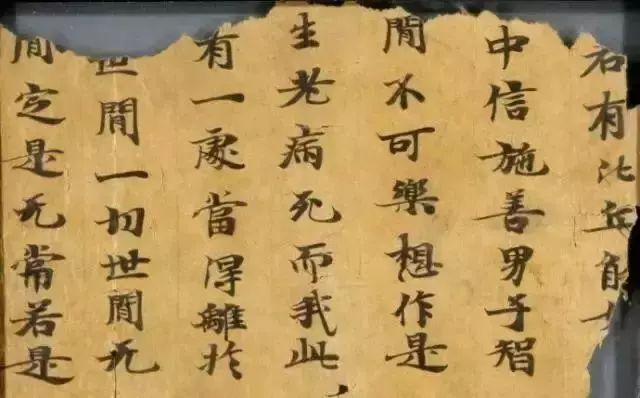 若有比丘
中信施善男子智
間不可樂想作是
生老病死而我此
有一處當得離於
世間一切世間无
間定是无常若是